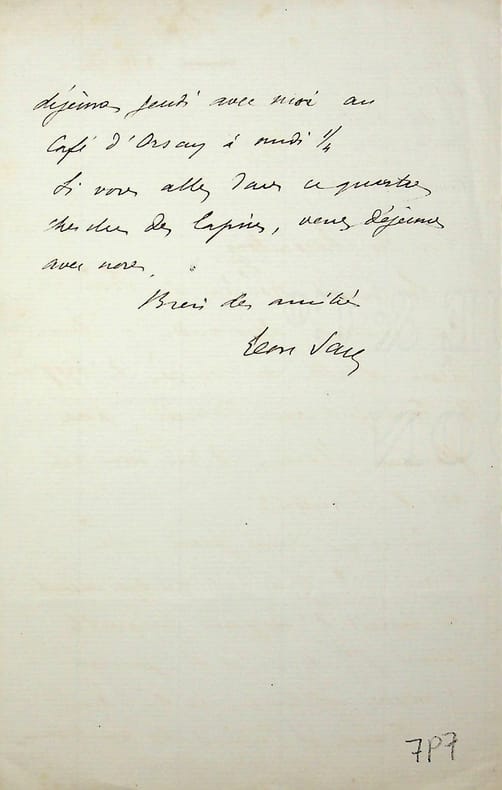 déjeuner jeudi avec moi au
Café d'Orsay à midi 1/4
Si vous allez dans ce quartier
chercher des lapins, venez déjeuner
avec nous.
Bien des amitiés
Léon Say
7P7